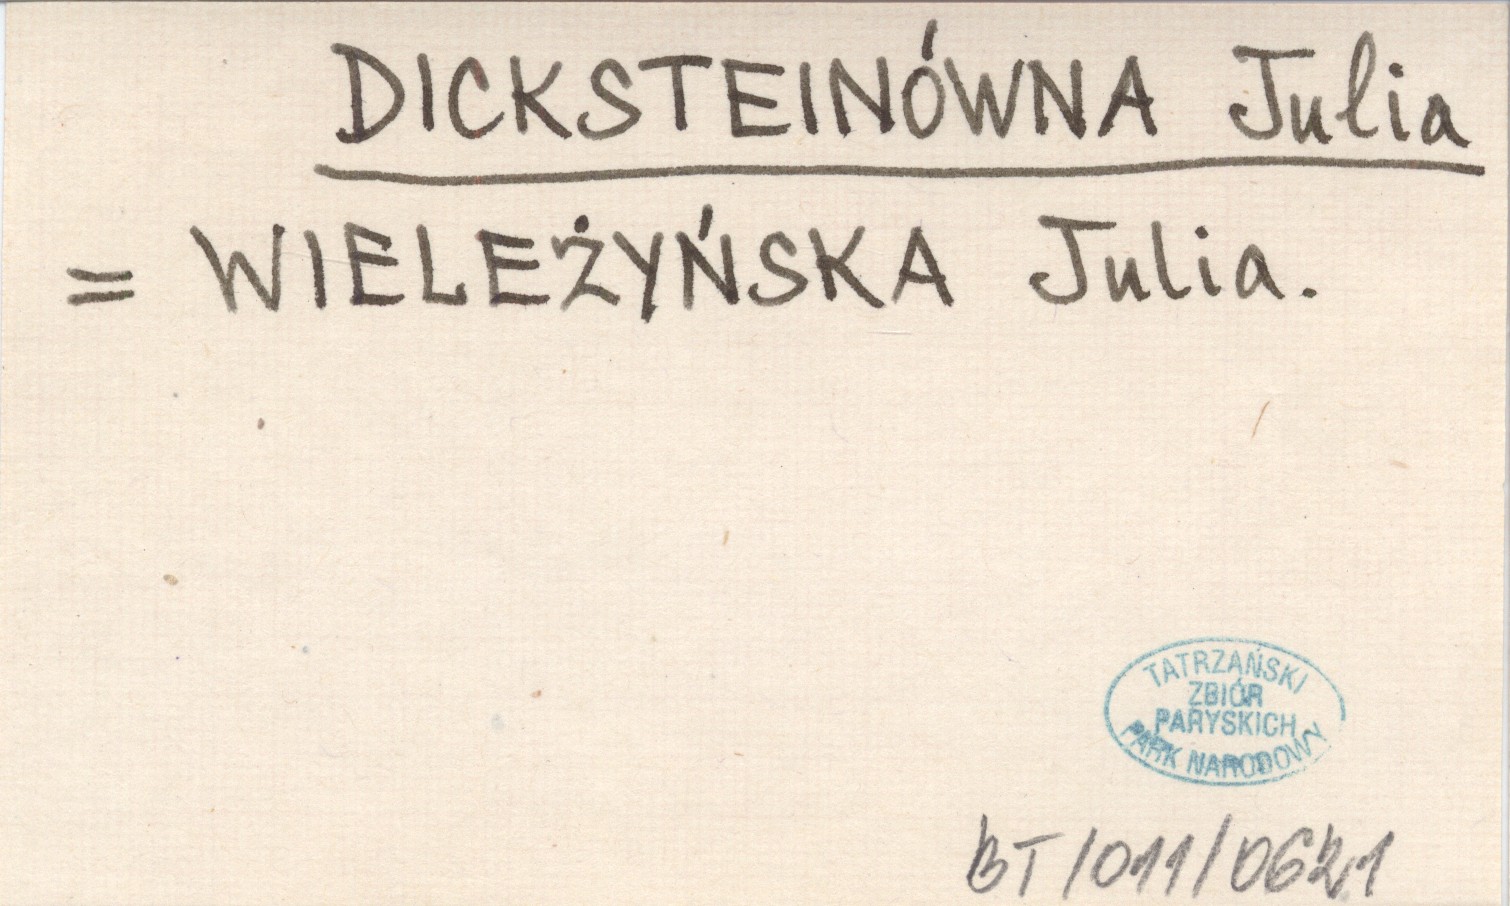 DICKSTEINÓWNA Julia
= WIELEŻYŃSKA Julia.
TATRZAŃSKI
ZBIÓR
PARYSKICH
PARK NARODOWY
BT/011/0621